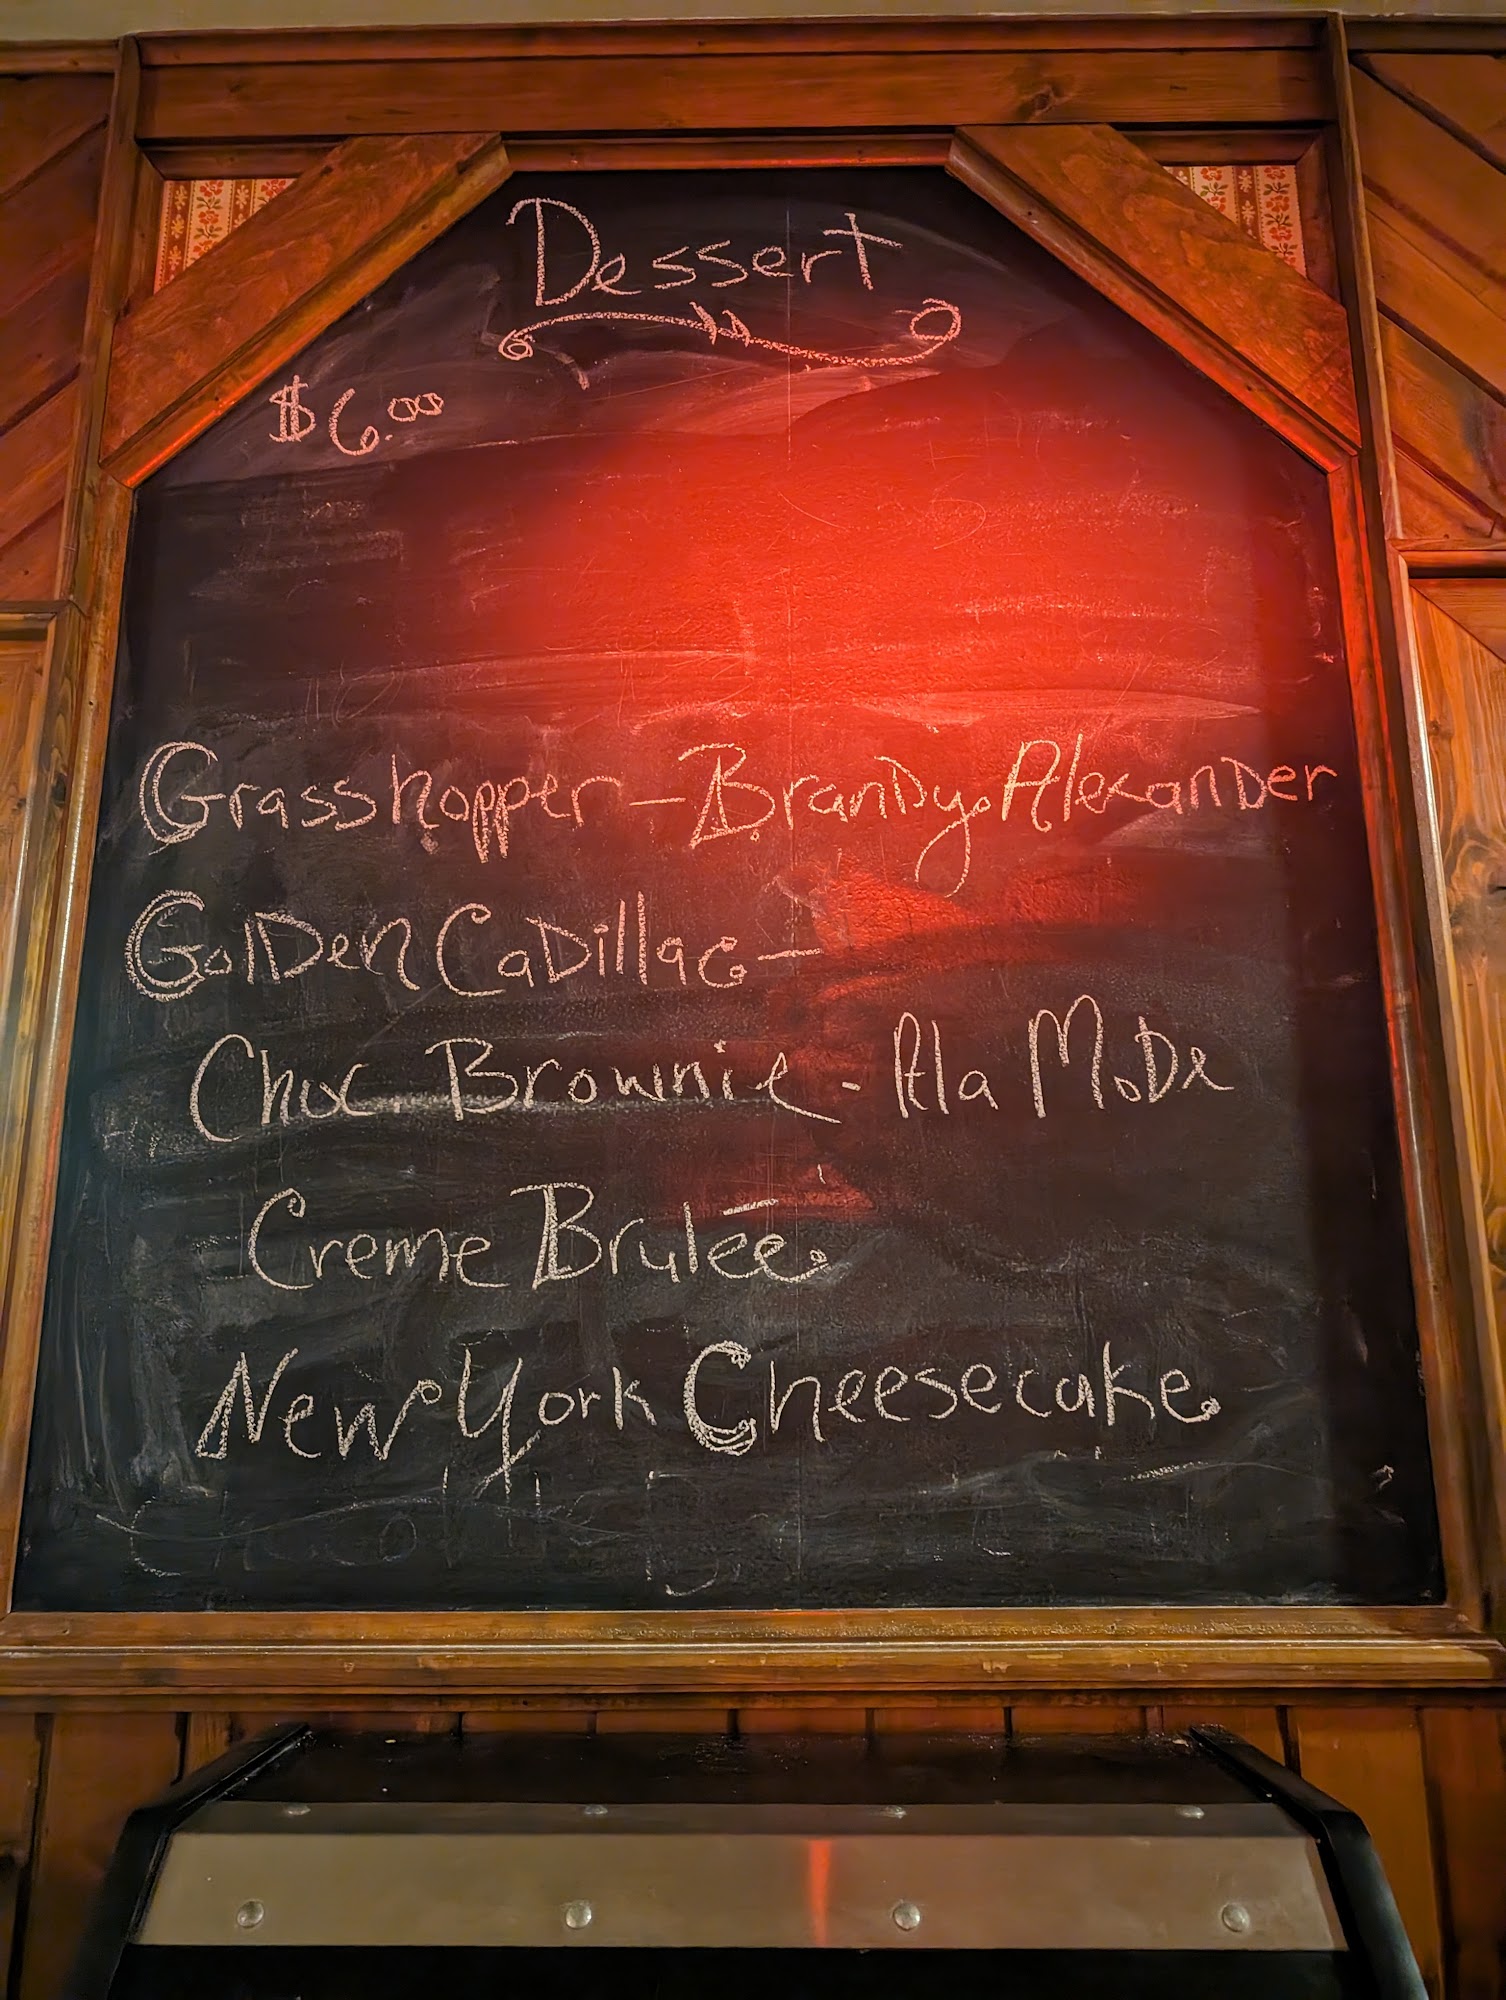 Dessert
$6.00
Grasshopper - Brandy Alexander
Golden Cadillac -
Choc. Brownie - Ala Mode
Creme Brulee
New York Cheesecake